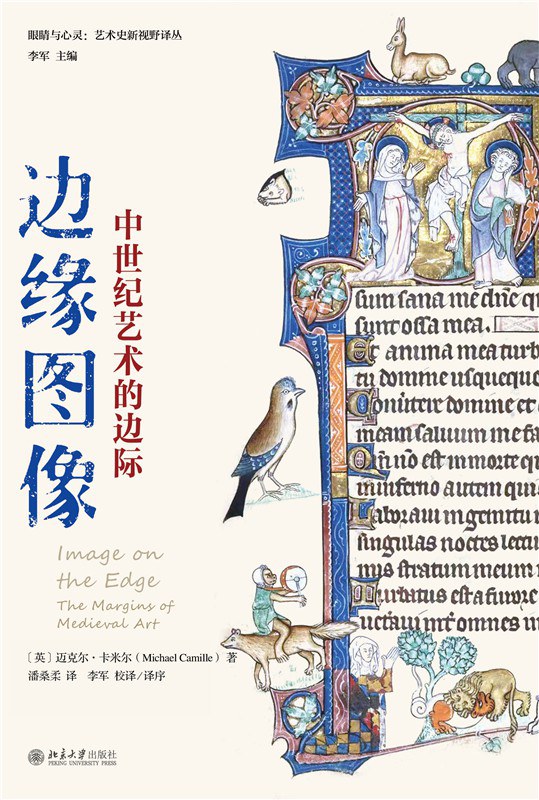 眼睛与心灵：艺术史新视野译丛
李军 主编
边缘图像
中世纪艺术的边际
Image on
the Edge
The Margins of
Medieval Art
［英］迈克尔·卡米尔（Michael Camille）著
潘桑柔 译 李军 校译/译序
北京大学出版社
PEKING UNIVERSITY PRESS
sum sana me dn̄e q
sunt ossa mea.
Et anima mea turb
tu domine usqueque
Conuertere domine et
meam saluum me fa
Qm̄ nō est in morte q
in inferno autem quis
Laboraui in gemitu
singulas noctes lectu
mis stratum meum
Turbatus est a furore